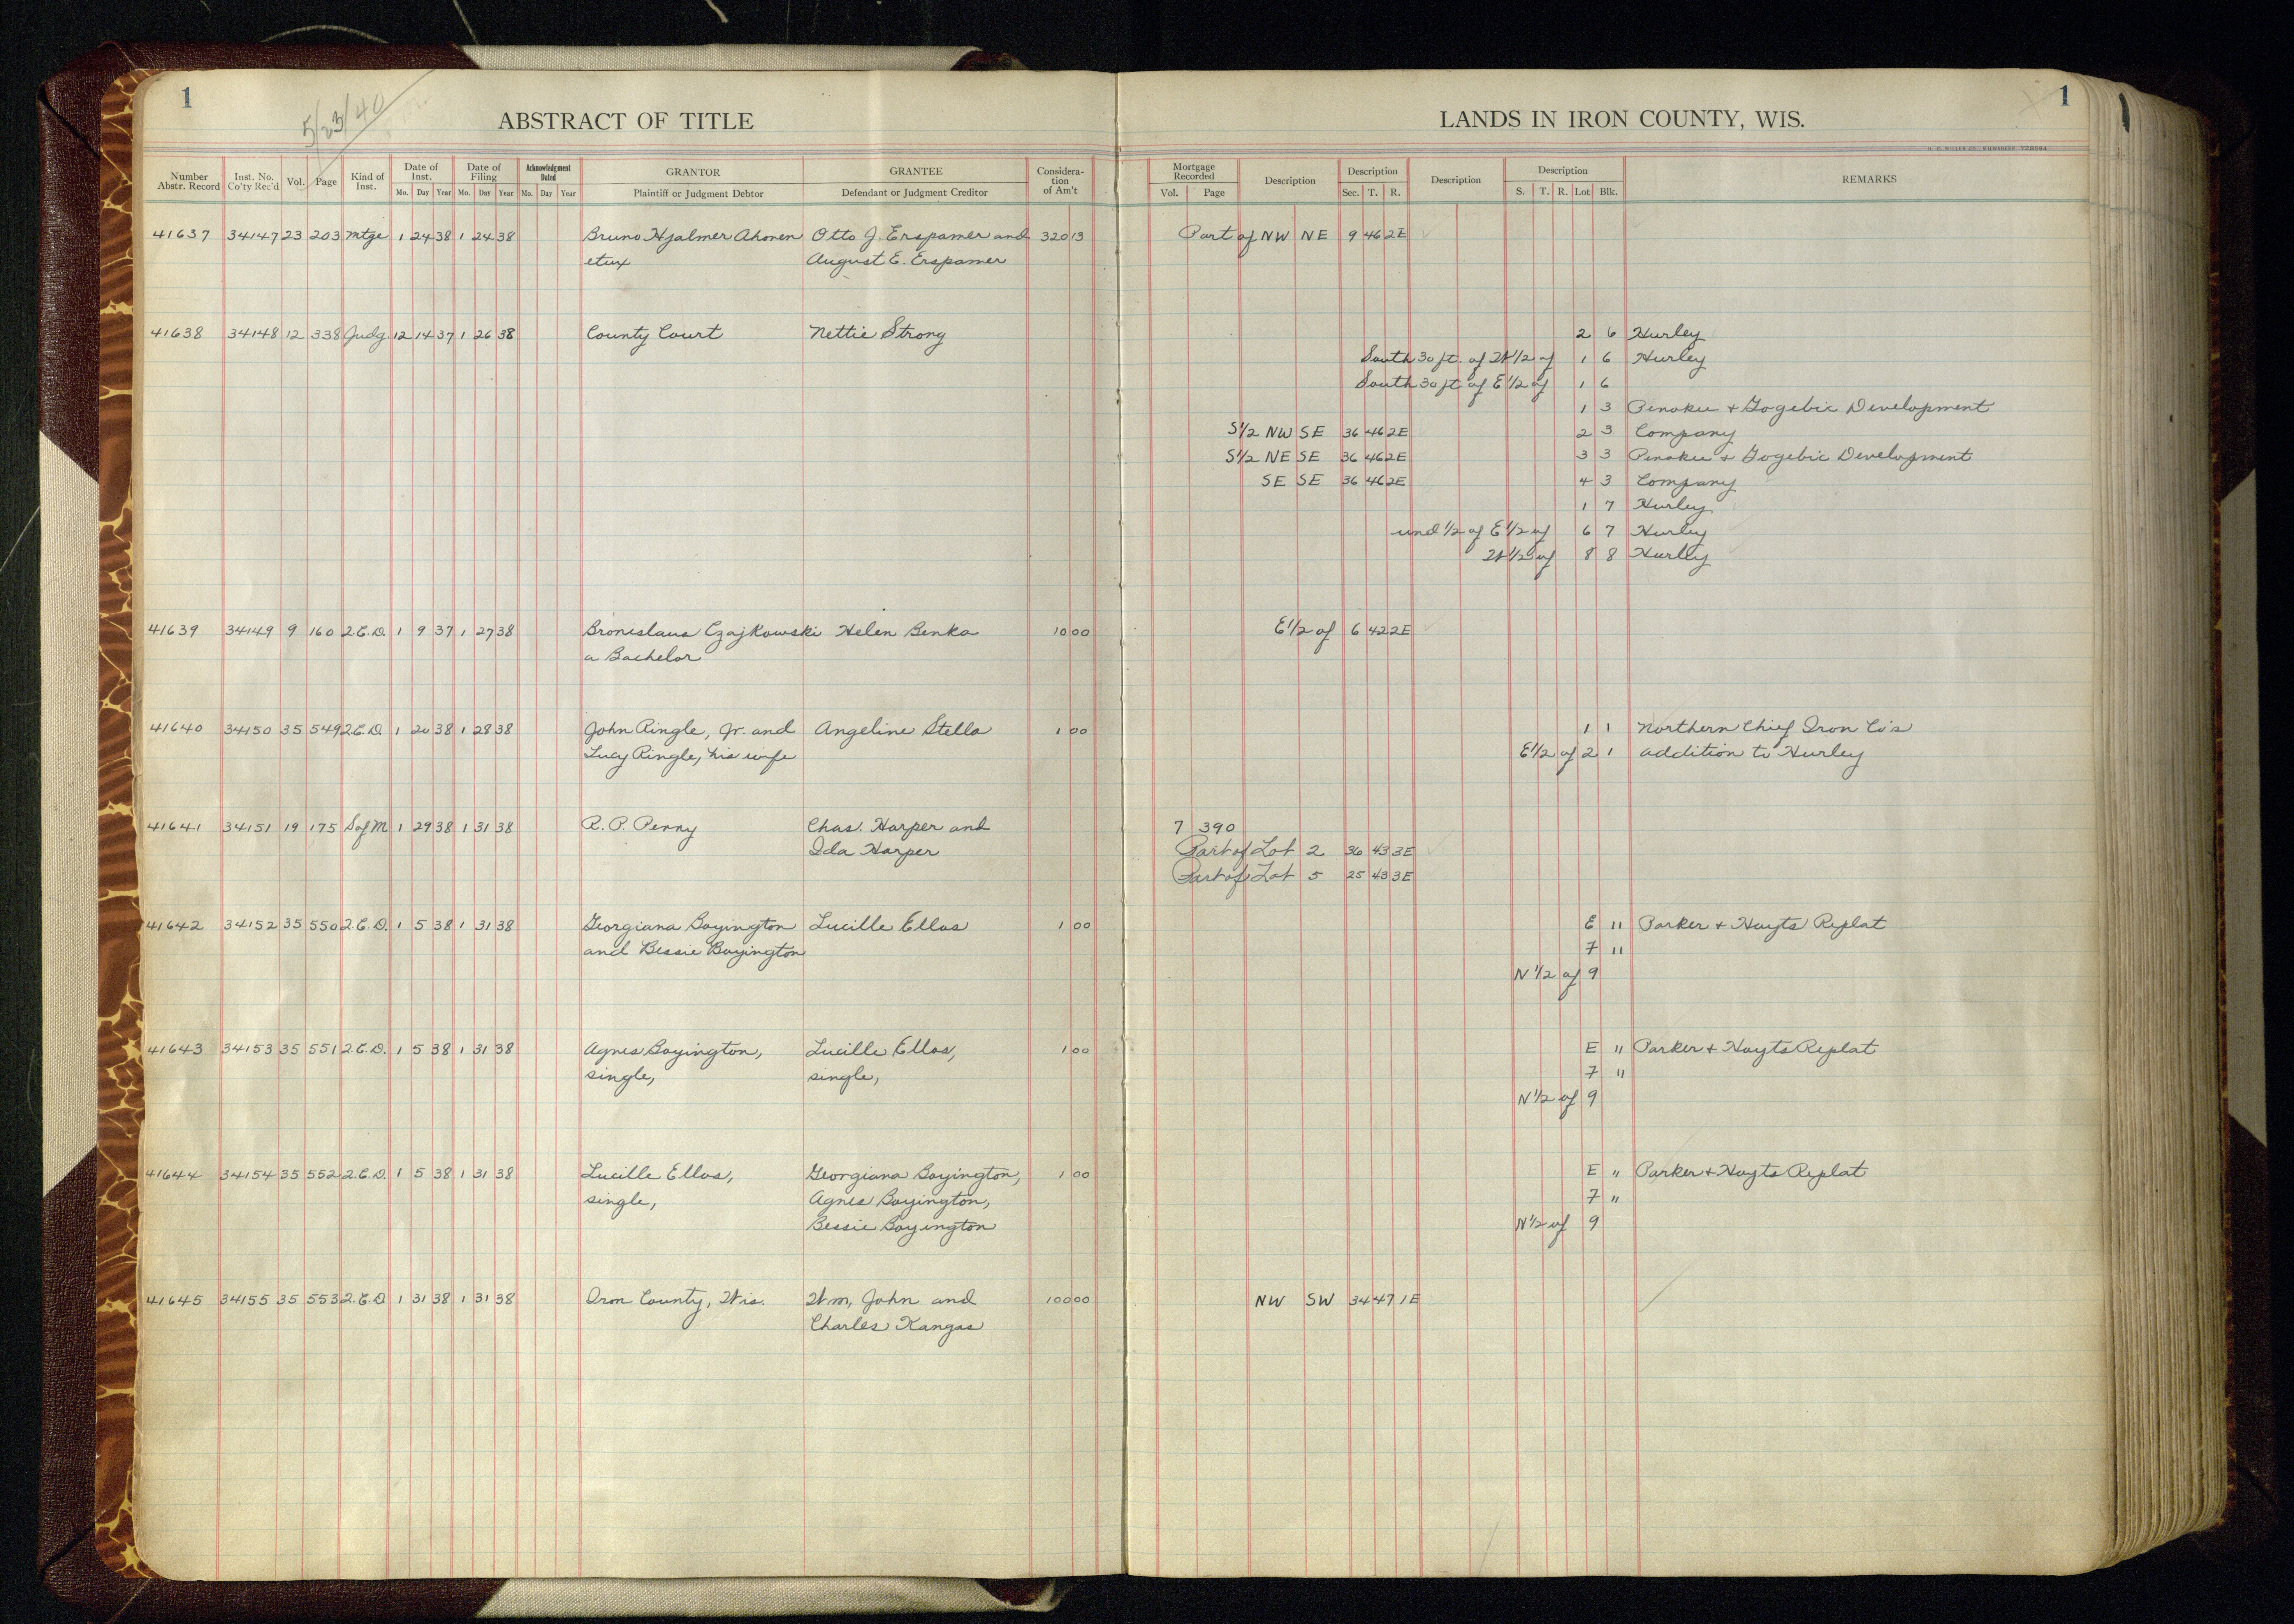 1
5/23/40
ABSTRACT OF TITLE
Number Abstr. Record | Inst. No. Co'ty Rec'd | Vol. | Page | Kind of Inst. | Date of Inst. Mo. Day Year | Date of Filing Mo. Day Year | Acknowledgment Dated Mo. Day Year | GRANTOR Plaintiff or Judgment Debtor | GRANTEE Defendant or Judgment Creditor | Consideration of Am't
41637 34147 23 203 Mtge 1 24 38 1 24 38 Bruno Hjalmer Ahonen Otto J. Erspamer and 320 13
etux August E. Erspamer
41638 34148 12 338 Judg. 12 14 37 1 26 38 County Court Nettie Strong
41639 34149 9 160 Q.C.D. 1 9 37 1 27 38 Bronislaus Czajkowski Helen Benka 10 00
a Bachelor
41640 34150 35 549 Q.C.D. 1 20 38 1 28 38 John Ringle, Jr. and Angeline Stella 1 00
Lucy Ringle, his wife
41641 34151 19 175 S of M 1 29 38 1 31 38 R. P. Penny Chas. Harper and
Ida Harper
41642 34152 35 550 Q.C.D. 1 5 38 1 31 38 Georgiana Boyington Lucille Ellas 1 00
and Bessie Boyington
41643 34153 35 551 Q.C.D. 1 5 38 1 31 38 Agnes Boyington, Lucille Ellas, 1 00
single, single,
41644 34154 35 552 Q.C.D. 1 5 38 1 31 38 Lucille Ellas, Georgiana Boyington, 1 00
single, Agnes Boyington,
Bessie Boyington
41645 34155 35 553 Q.C.D 1 31 38 1 31 38 Iron County, Wis. Wm, John and 100 00
Charles Kangas
1
LANDS IN IRON COUNTY, WIS.
Mortgage Recorded Vol. Page | Description | Description Sec. T. R. | Description | Description S. T. R. Lot Blk. | REMARKS
Part of NW NE 9 46 2E
2 6 Hurley
South 30 ft. of W 1/2 of 1 6 Hurley
South 30 ft of E 1/2 of 1 6
1 3 Penokee + Gogebic Development
S 1/2 NW SE 36 46 2E 2 3 Company
S 1/2 NE SE 36 46 2E 3 3 Penokee + Gogebic Development
SE SE 36 46 2E 4 3 Company
1 7 Hurley
und 1/2 of E 1/2 of 6 7 Hurley
W 1/2 of 8 8 Hurley
E 1/2 of 6 42 2E
1 1 Northern Chief Iron Co's
E 1/2 of 2 1 addition to Hurley
7 390
Part of Lot 2 36 43 3E
Part of Lot 5 25 43 3E
E 11 Parker + Hoyts Replat
7 11
N 1/2 of 9
E 11 Parker + Hoyts Replat
7 11
N 1/2 of 9
E " Parker + Hoyts Replat
7 "
N 1/2 of 9
NW SW 34 47 1E